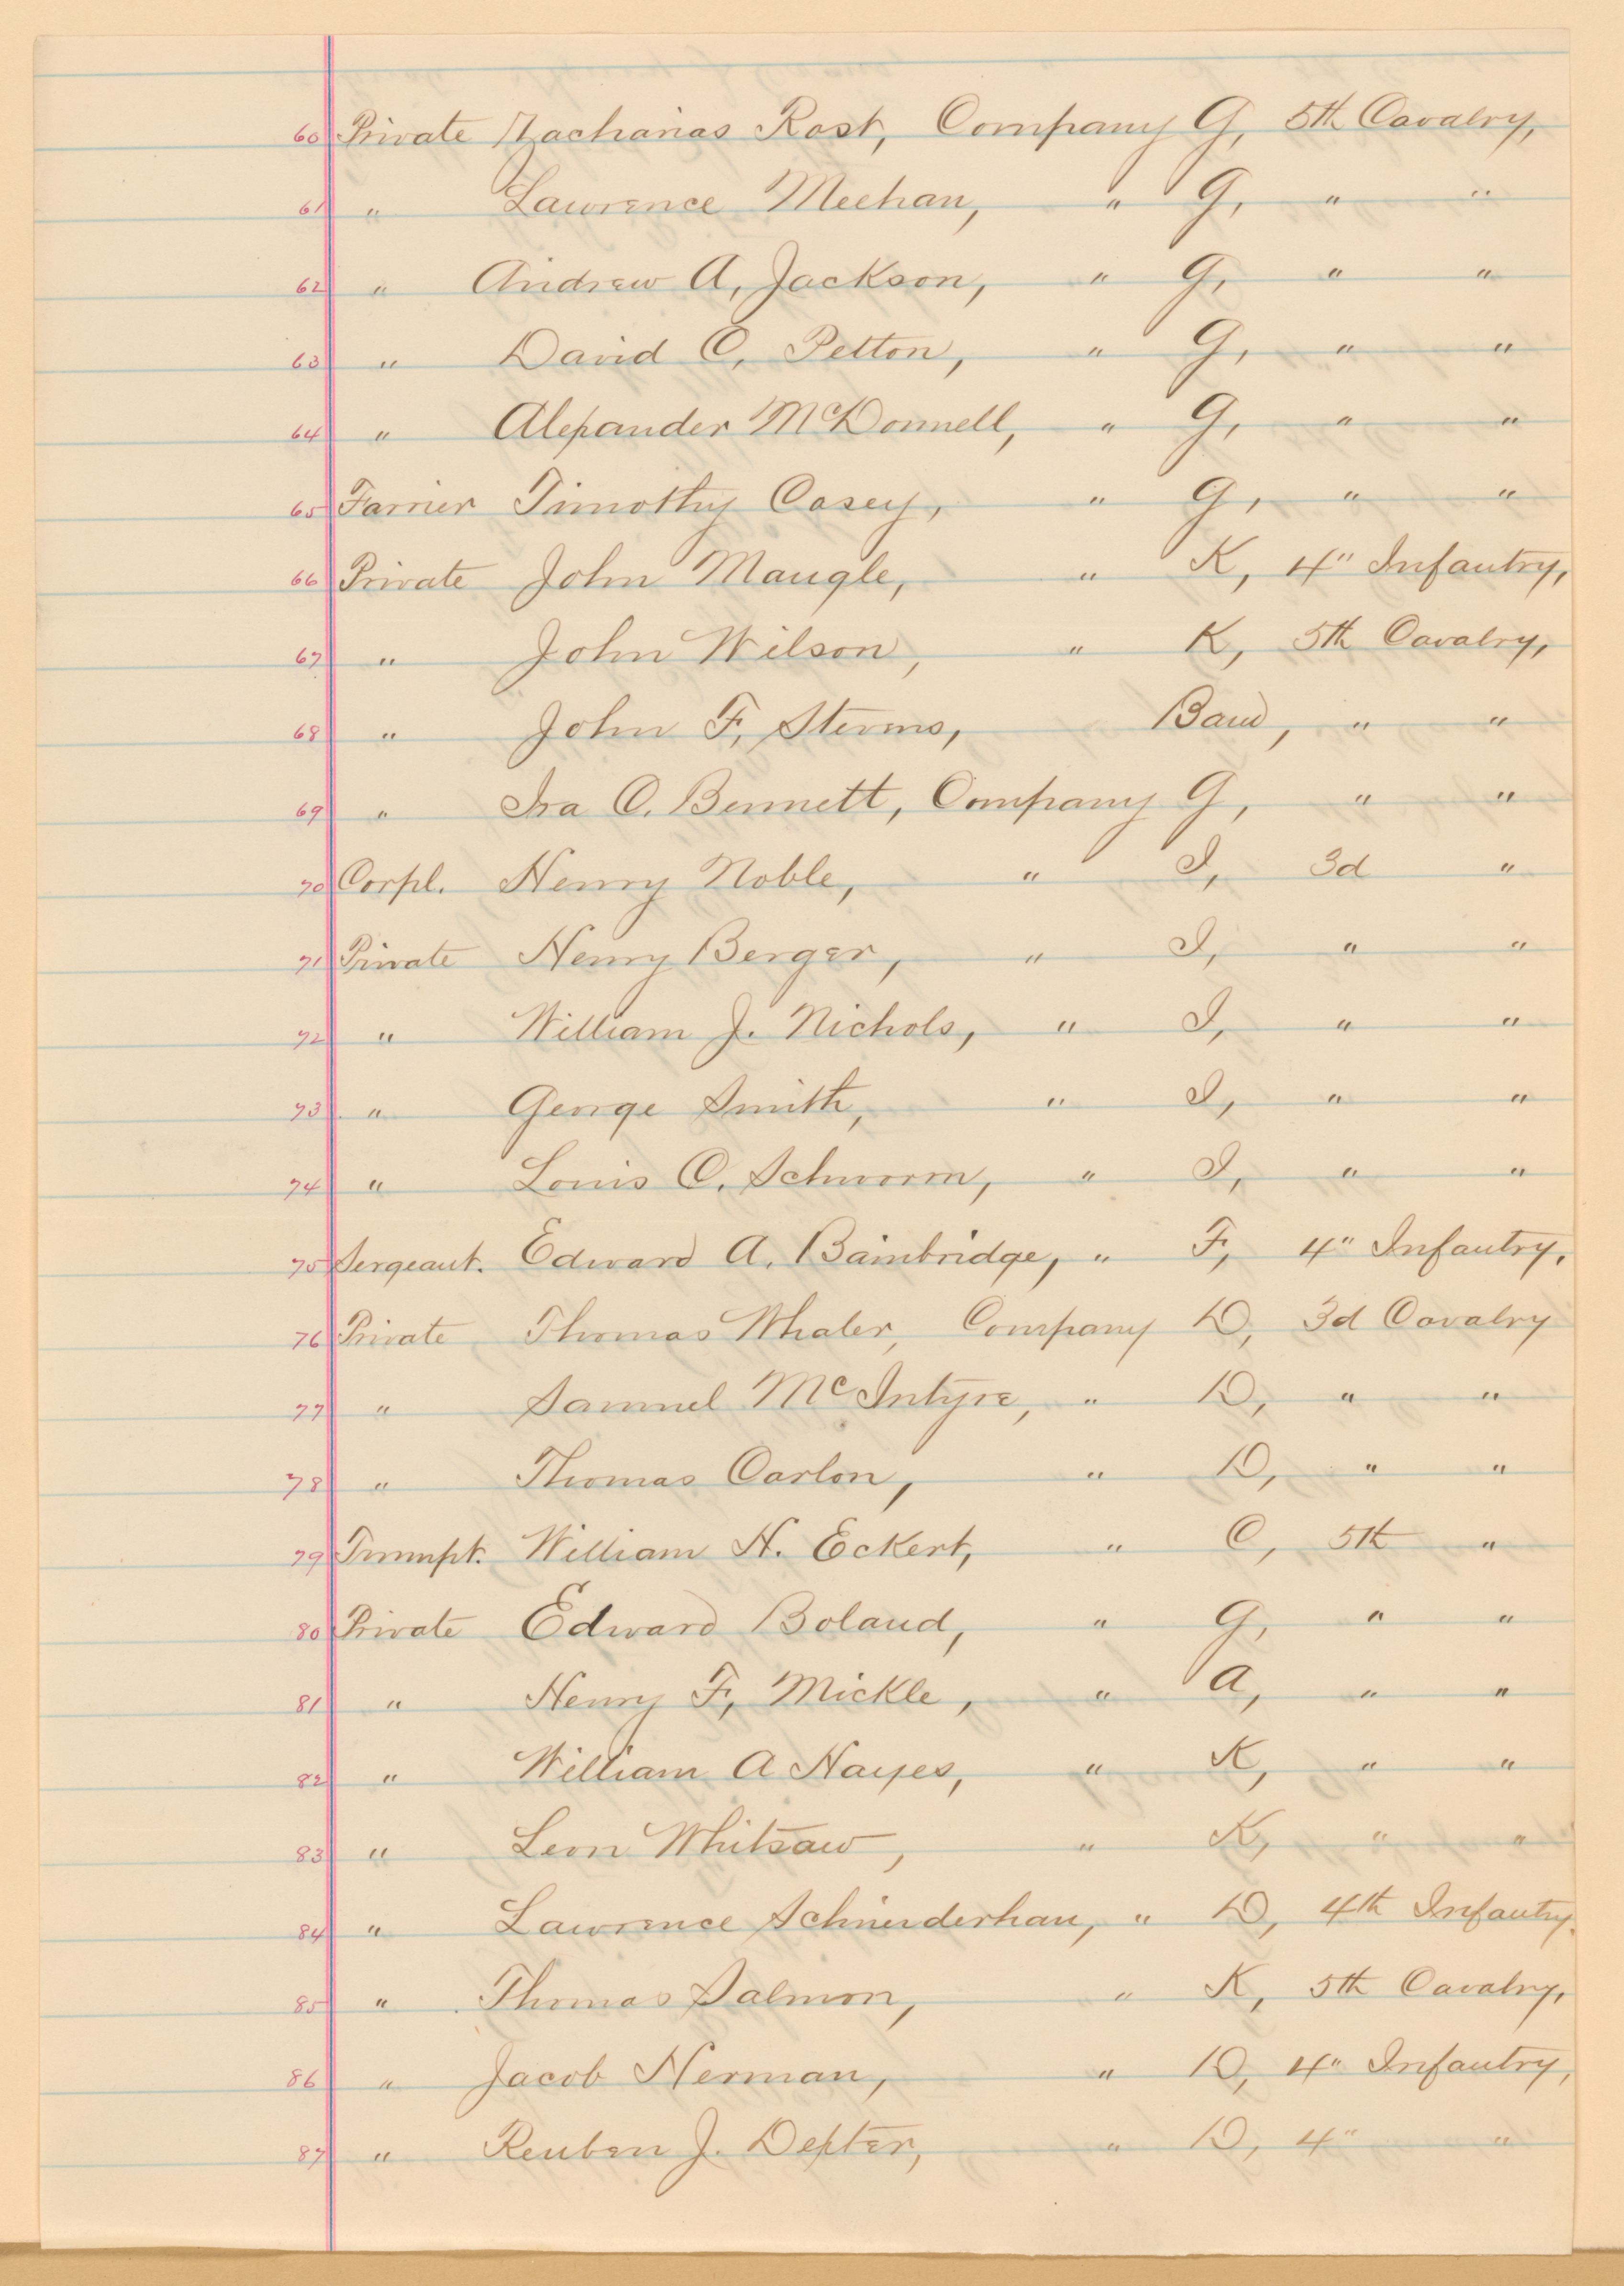 60 Private Zacharias Rost, Company G, 5th Cavalry,
61 " Lawrence Meehan, " G, " "
62 " Andrew A, Jackson, " G, " "
63 " David C, Petton, " G, " "
64 " Alexander McDonnell, " G, " "
65 Farrier Timothy Casey, " G, " "
66 Private John Maugle, " K, 4" Infantry,
67 " John Wilson, " K, 5th Cavalry,
68 " John F, Stevens, Band, " "
69 " Ira C. Bennett, Company G, " "
70 Corpl. Henry Noble, " I, 3d "
71 Private Henry Berger, " I, " "
72 " William J. Nichols, " I, " "
73 " George Smith, " I, " "
74 " Louis C. Schworm, " I, " "
75 Sergeant. Edward A. Bainbridge, " F, 4" Infantry,
76 Private Thomas Whaler, Company D, 3d Cavalry
77 " Samuel McIntyre, " D, " "
78 " Thomas Carlon, " D, " "
79 Trumpt. William H. Eckert, " C, 5th "
80 Private Edward Boland, " G, " "
81 " Henry F, Mickle, " A, " "
82 " William A Hayes, " K, " "
83 " Leon Whitsaw, " K, " "
84 " Lawrence Schneiderhan, " D, 4th Infantry.
85 " Thomas Salmon, " K, 5th Cavalry,
86 " Jacob Herman, " D, 4" Infantry,
87 " Reuben J. Dexter, " D, 4" "